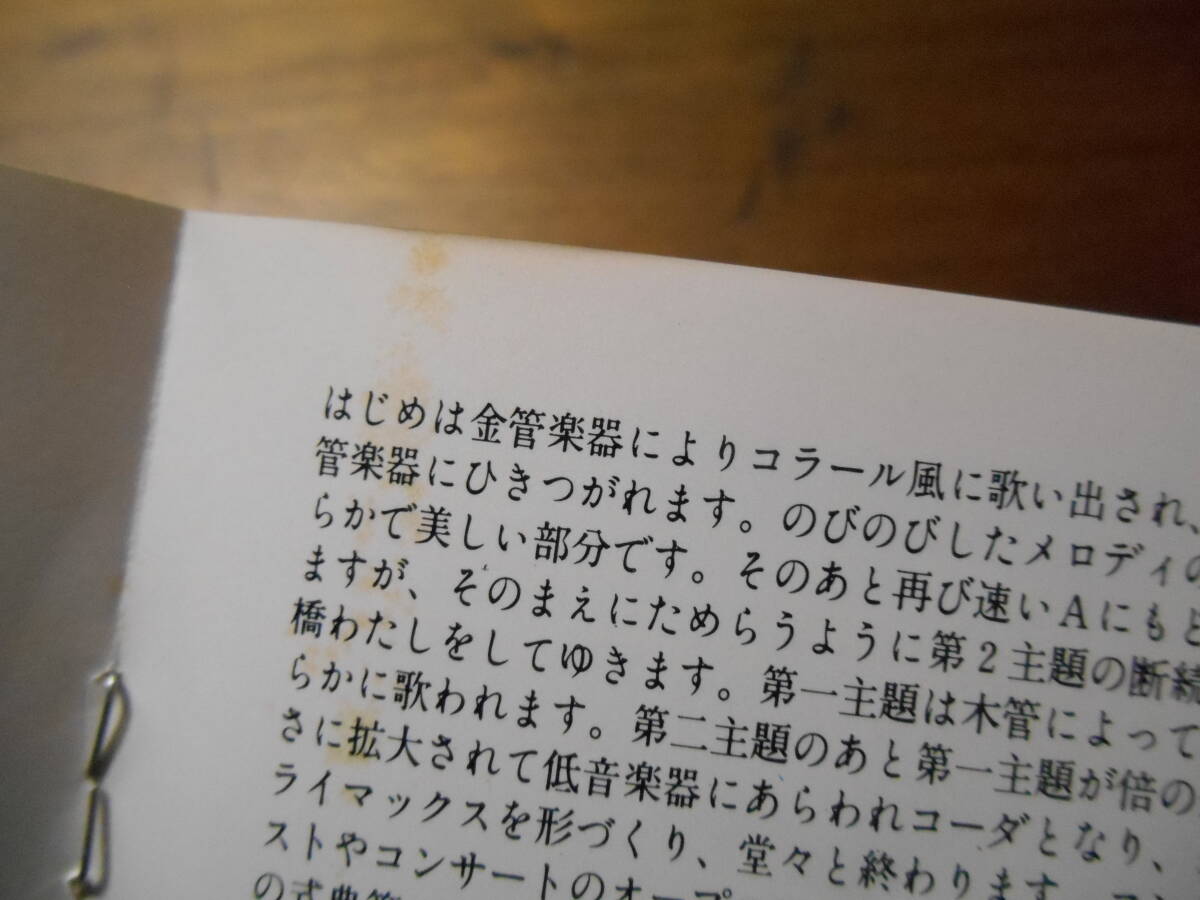 はじめは金管楽器によりコラール風に歌い出され、
管楽器にひきつがれます。のびのびしたメロディの
らかで美しい部分です。そのあと再び速いAにもど
ますが、そのまえにためらうように第2主題の断続
橋わたしをしてゆきます。第一主題は木管によって
らかに歌われます。第二主題のあと第一主題が倍の
さに拡大されて低音楽器にあらわれコーダとなり、
ライマックスを形づくり、堂々と終わります。コン
ストやコンサートのオープ
の式典等